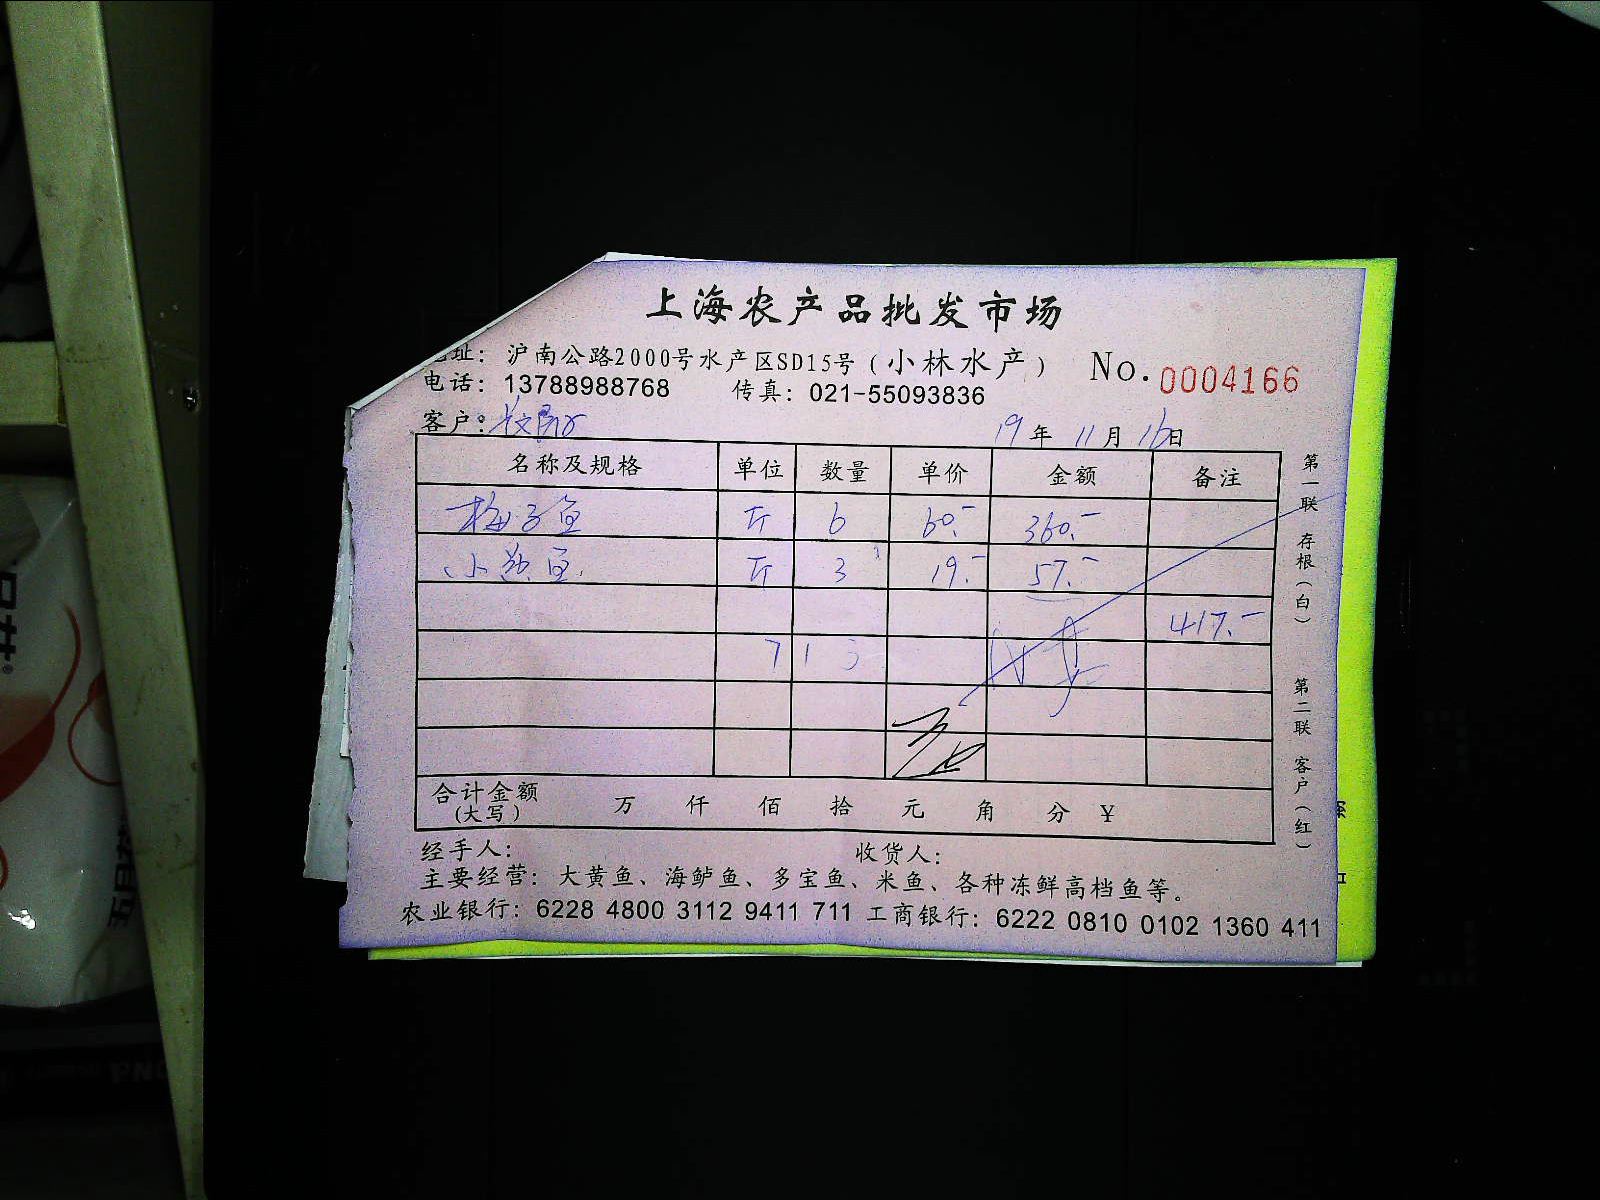 上海农产品批发市场
址: 沪南公路2000号水产区SD15号 (小林水产) No.0004166
电话: 13788988768 传真: 021-55093836
客户: 19年 11月 16日
名称及规格 单位 数量 单价 金额 备注
梅子鱼 斤 6 60.- 360.-
小黄鱼 斤 3 19.- 57.-
417.-
7 1 3
合计金额 万 仟 佰 拾 元 角 分 ¥
(大写)
经手人: 收货人:
主要经营: 大黄鱼、海鲈鱼、多宝鱼、米鱼、各种冻鲜高档鱼等。
农业银行: 6228 4800 3112 9411 711 工商银行: 6222 0810 0102 1360 411
第一联 存根(白) 第二联 客户(红)